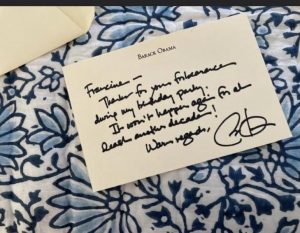 BARACK OBAMA
Francine —
Thanks for your forbearance
during my birthday party!
It won't happen again for at
least another decade!
Warm regards,